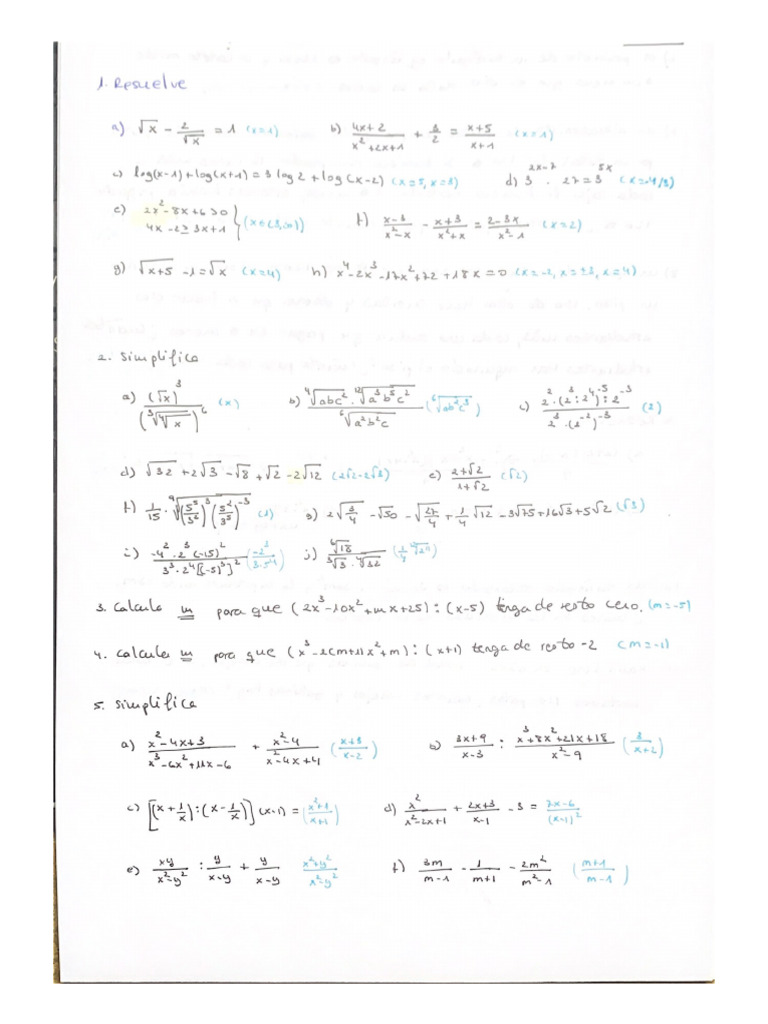 1. Resuelve
a) √x - 2/√x = 1 (x=1) b) (4x+2)/(x²+2x+1) + 1/2 = (x+5)/(x+1) (x=1)
c) log(x-1)+log(x+1) = 3 log 2 + log(x-2) (x=5, x=3) d) 3^(2x-7) · 27 = 3^(5x) (x=-4/3)
e) 2x²-8x+6>0
4x-2≥3x+1 } (x∈(3,∞) f) (x-3)/(x²-x) - (x+3)/(x²+x) = (2-3x)/(x²-1) (x=2)
g) √(x+5) - 1 = √x (x=4) h) x⁴-2x³-17x²+72+18x=0 (x=-2, x=±3, x=4)
2. Simplifica
a) (√x)³/(∛(∜x))⁶ (x) b) (∜(abc²) · ¹²√(a³b⁵c²))/⁶√(a²b²c) (⁶√(ab²c³)) c) (2·(2³:2⁴)⁻⁵:2⁻³)/(2³·(2⁻²)⁻³) (2)
d) √32 + 2√3 - √8 + √2 - 2√12 (2√2-2√3) e) (2+√2)/(1+√2) (√2)
f) 1/15 · ⁹√((5⁵/3⁶)³(5²/3⁵)⁻³) (1) g) 2√(3/4) - √50 - √(27/4) + 1/4 √12 - 3√75 + 16√3 + 5√2 (√3)
i) (-4²·2³(-15)²)/(3³·2⁴[(-5)³]²) (-2³/(3·5⁴)) j) ⁶√18/(∛3 · ∜32)
3. Calcula m para que (2x³-10x²+mx+25):(x-5) tenga de resto cero. (m=-5)
4. Calcula m para que (x³-2(m+1)x²+m):(x+1) tenga de resto -2 (m=-1)
5. Simplifica
a) (x²-4x+3)/(x³-6x²+11x-6) + (x²-4)/(x²-4x+4) ((x+3)/(x-2)) b) (3x+9)/(x-3) : (x³+8x²+21x+18)/(x²-9) (3/(x+2))
c) [(x+1/x):(x-1/x)](x-1) = ((x²+1)/(x+1)) d) x²/(x²-2x+1) + (2x+3)/(x-1) - 3 = (7x-6)/(x-1)²
e) xy/(x²-y²) : y/(x-y) + y/(x-y) (x²+y²)/(x²-y²) f) 3m/(m-1) - 1/(m+1) - 2m²/(m²-1) ((m+1)/(m-1))